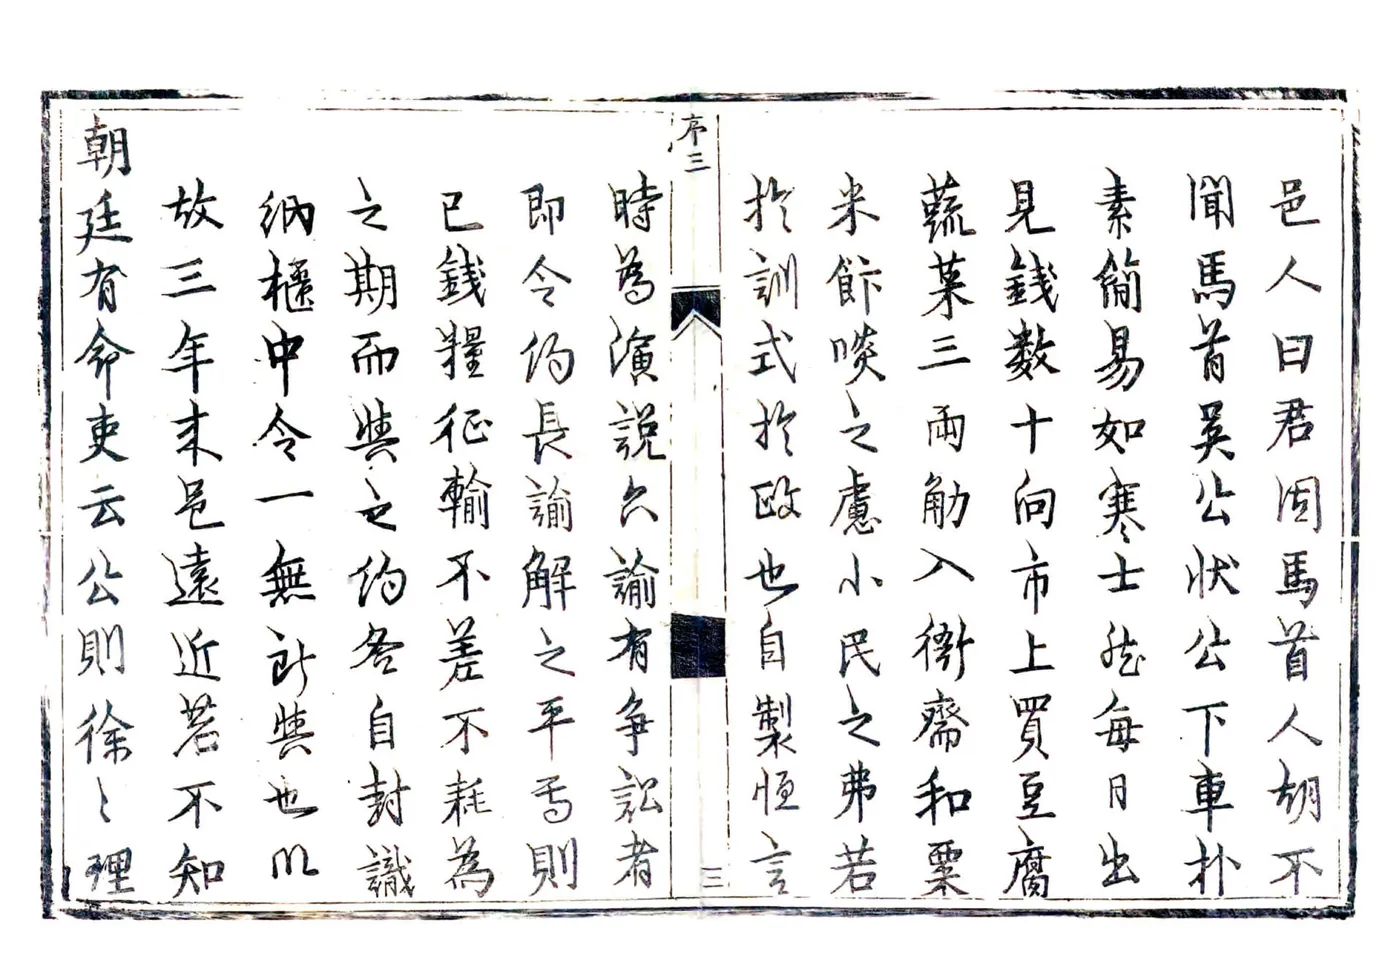 邑人曰君固馬首人胡不
聞馬首吳公狀公下車朴
素簡易如寒士然每日出
見錢数十向市上買豆腐
蔬菜三兩觔入衙齋和粟
米餰啖之慮小民之弗若
於訓式於敺也自製恒言
序三
三
時為演說六諭有争訟者
即令約長諭解之平焉則
已錢糧征輸不差不耗為
之期而與之約各自封識
納櫃中令一無所與也以
故三年来邑遠近若不知
朝廷有命吏云公則徐〻理